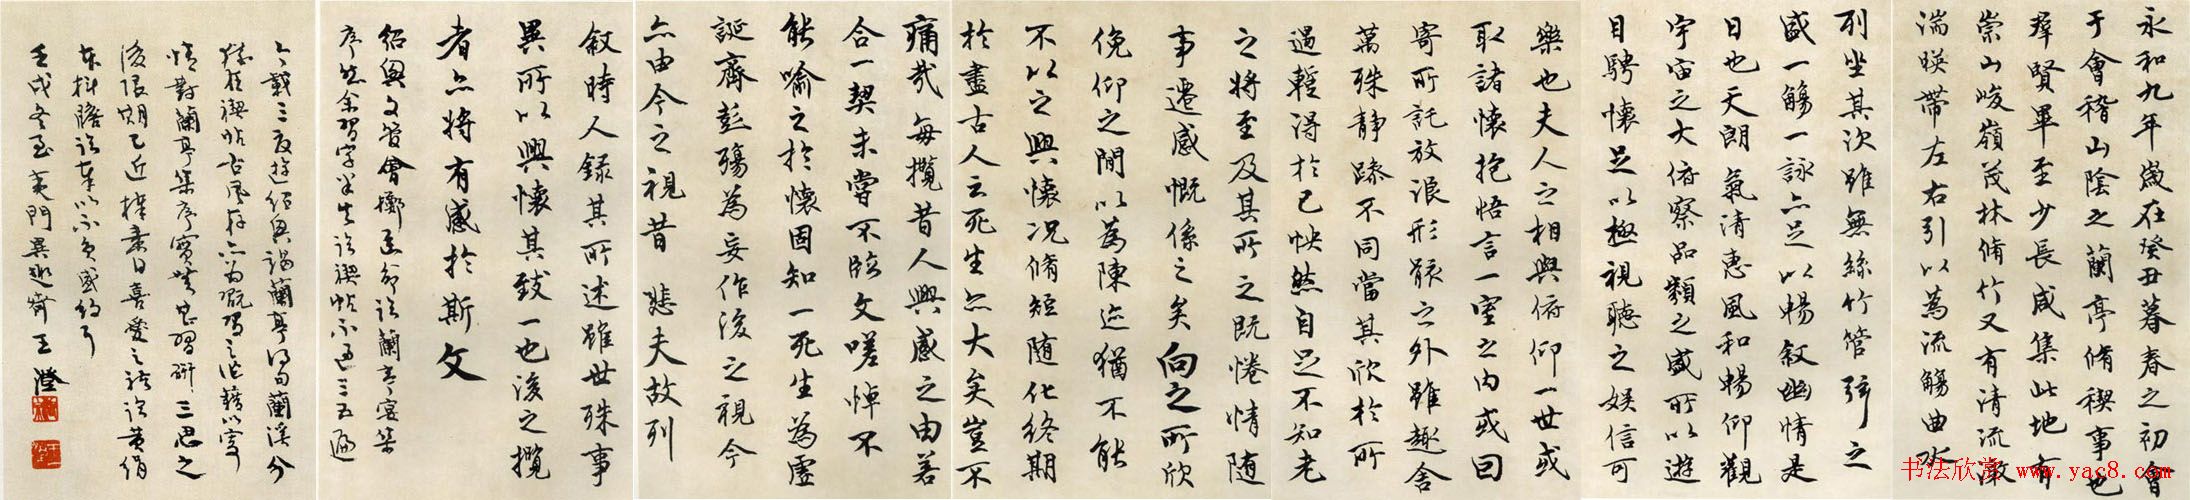 永和九年歲在癸丑暮春之初會
于會稽山陰之蘭亭脩稧事也
羣賢畢至少長咸集此地有
崇山峻嶺茂林脩竹又有清流激
湍暎帶左右引以為流觴曲水
列坐其次雖無絲竹管弦之
盛一觴一詠亦足以暢敘幽情是
日也天朗氣清惠風和暢仰觀
宇宙之大俯察品類之盛所以遊
目騁懷足以極視聽之娛信可
樂也夫人之相與俯仰一世或
取諸懷抱悟言一室之內或因
寄所託放浪形骸之外雖趣舍
萬殊靜躁不同當其欣於所
遇蹔得於己怏然自足不知老
之將至及其所之既惓情隨
事遷感慨係之矣向之所欣
俛仰之閒以為陳迹猶不能
不以之興懷況脩短隨化終期
於盡古人云死生亦大矣豈不
痛哉每攬昔人興感之由若
合一契未嘗不臨文嗟悼不
能喻之於懷固知一死生為虛
誕齊彭殤為妄作後之視今
亦由今之視昔 悲夫故列
敘時人錄其所述雖世殊事
異所以興懷其致一也後之攬
者亦將有感於斯文
紹興文管會擲函命臨蘭亭宴集
序然余習字半生臨禊帖不過三五遍
六載三度遊紹興謁蘭亭得句蘭溪分
猶存禊帖古風存
情對蘭亭集序實 習研三思之
後限期已近擇素日喜愛之 臨黃絹
本 臨奉以不負盛約耳
壬戌冬至夷門 王澄
书法欣赏 www.yac8.com